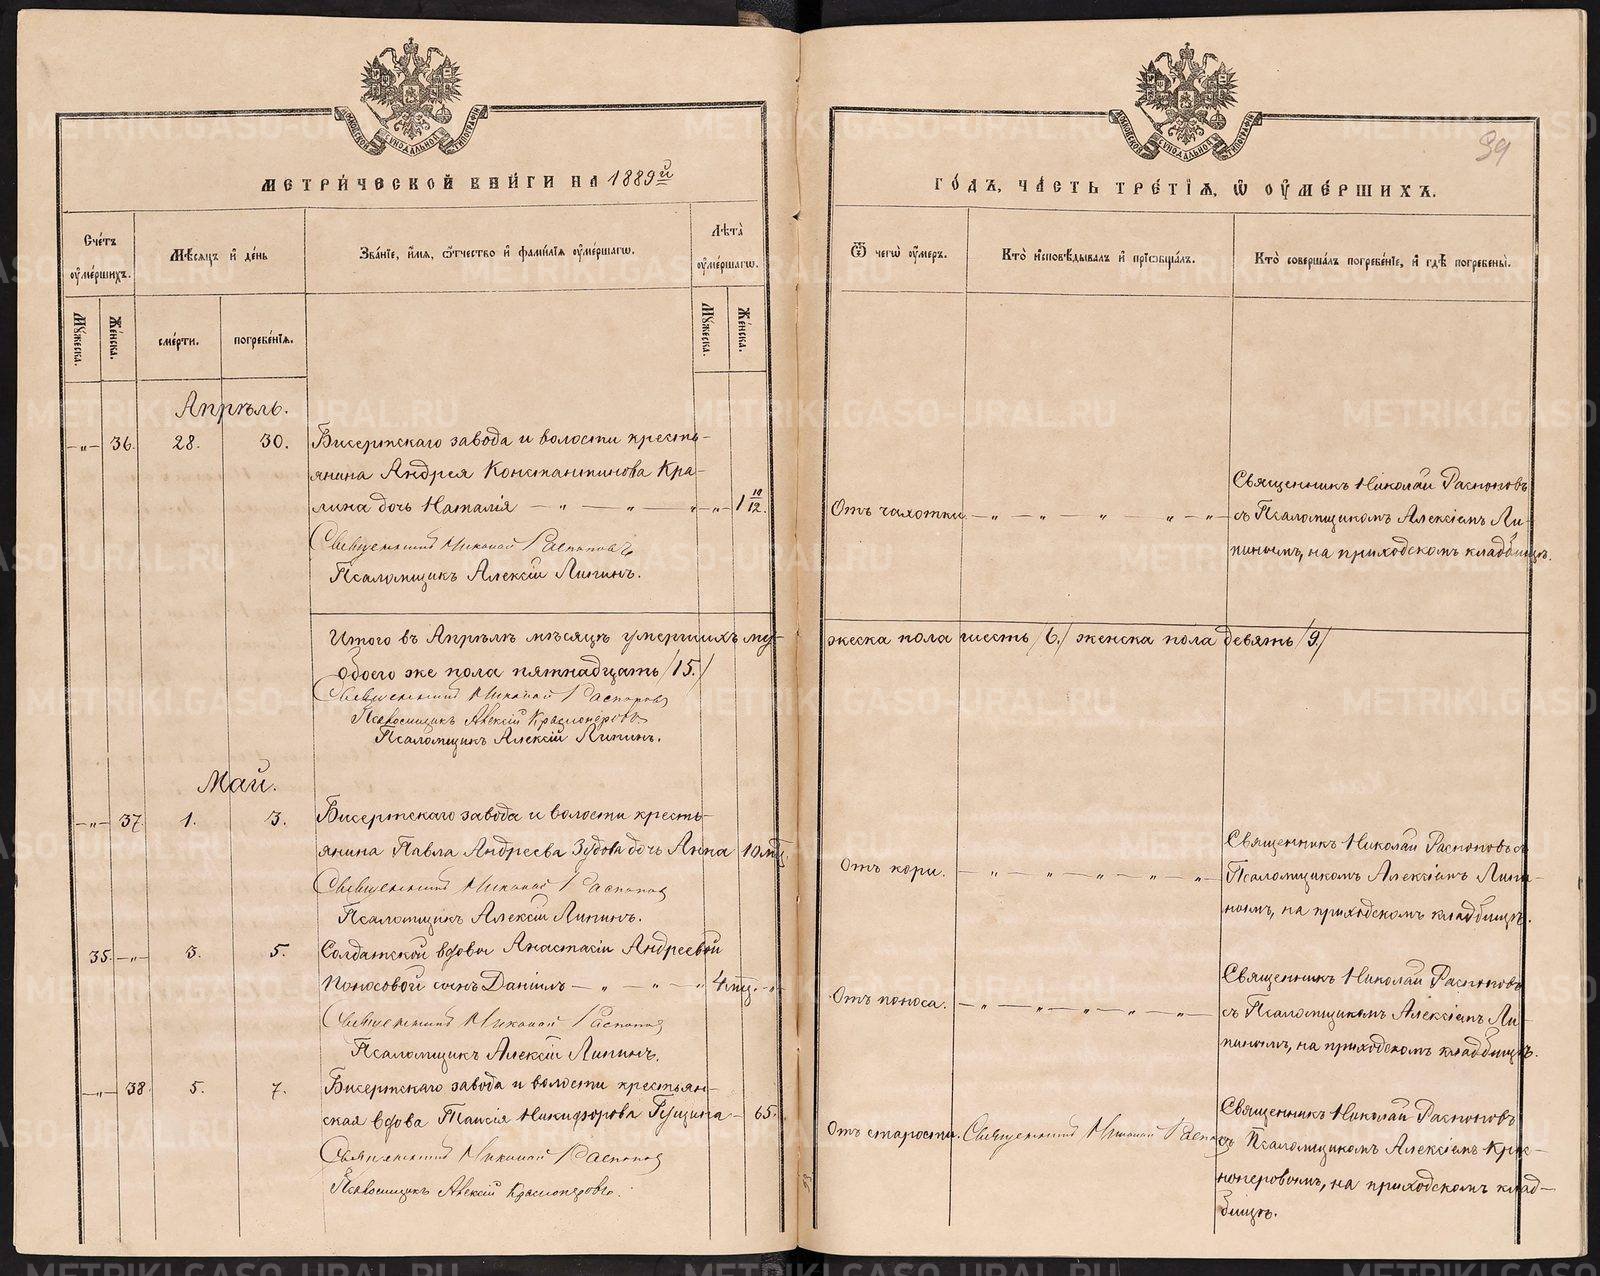 МОСКОВСКОЙ СѴНОДАЛЬНОЙ ТИПОГРАФІИ
МЕТРИ́ЧЕСКОЙ КНИ́ГИ НА 1889й
Сче́тъ ᲂу҆ме́ршихъ.
Мѣ́сяцъ и҆ де́нь
Зва́нїе, и҆́мя, ѻ҆́тчество и҆ фами́лїя ᲂу҆ме́ршагѡ.
Лѣ́та ᲂу҆ме́ршагѡ.
Мꙋ́жеска.
Же́нска.
сме́рти.
погребе́нїя.
Мꙋ́жеска.
Же́нска.
Апрѣль.
-„- 36. 28. 30. Бисертскаго завода и волости кресть-
янина Андрея Константинова Кра-
лина дочь Наталія — „ — „ — „ — „ — 1 10/12.
Священникъ Николай Распоповъ
Псаломщикъ Алексій Липинъ.
Итого въ Апрѣлѣ мѣсяцѣ умершихъ му-
обоего же пола пятнадцать /15./
Священникъ Николай Распоповъ
Псаломщикъ Алексій Краснопёровъ
Псаломщикъ Алексій Липинъ.
Май.
-„- 37. 1. 3. Бисертскаго завода и волости кресть-
янина Павла Андреева Зудова дочь Анна 10 мц.
Священникъ Николай Распоповъ
Псаломщикъ Алексій Липинъ.
35. -„- 3. 5. Солдатской вдовы Анастасіи Андреевой
Поносовой сынъ Даніилъ — „ — „ — „ 4 мц. -„-
Священникъ Николай Распоповъ
Псаломщикъ Алексій Липинъ.
-„- 38. 5. 7. Бисертскаго завода и волости крестьян-
ская вдова Таисія Никифорова Гущина — 65.
Священникъ Николай Распоповъ
Псаломщикъ Алексій Краснопёровъ.
39
МОСКОВСКОЙ СѴНОДАЛЬНОЙ ТИПОГРАФІИ
ГО́ДЪ, ЧА́СТЬ ТРЕ́ТЇЯ, Ѽ ОУ҆МЕ́РШИХЪ.
Ѿ чегѡ̀ ᲂу҆́меръ.
Кто̀ и҆сповѣ́дывалъ и҆ прїѡбща́лъ.
Кто̀ соверша́лъ погребе́нїе, и҆ гдѣ̀ погребены̀.
Священникъ Николай Распоповъ
Отъ чахотки. — „ — „ — „ — „ — „ — съ Псаломщикомъ Алексіемъ Ли-
пинымъ, на приходскомъ кладбищѣ.
жеска пола шесть /6./ женска пола девять /9./
Священникъ Николай Распоповъ съ
Отъ кори. — „ — „ — „ — „ — „ — Псаломщикомъ Алексіемъ Липи-
нымъ, на приходскомъ кладбищѣ.
Священникъ Николай Распоповъ
Отъ поноса. — „ — „ — „ — „ — „ — съ Псаломщикомъ Алексіемъ Ли-
пинымъ, на приходскомъ кладбищѣ.
Священникъ Николай Распоповъ
Отъ старости. Священникъ Николай Распоповъ съ Псаломщикомъ Алексіемъ Крас-
ноперовымъ, на приходскомъ клад-
бищѣ.
METRIKI.GASO-URAL.RU